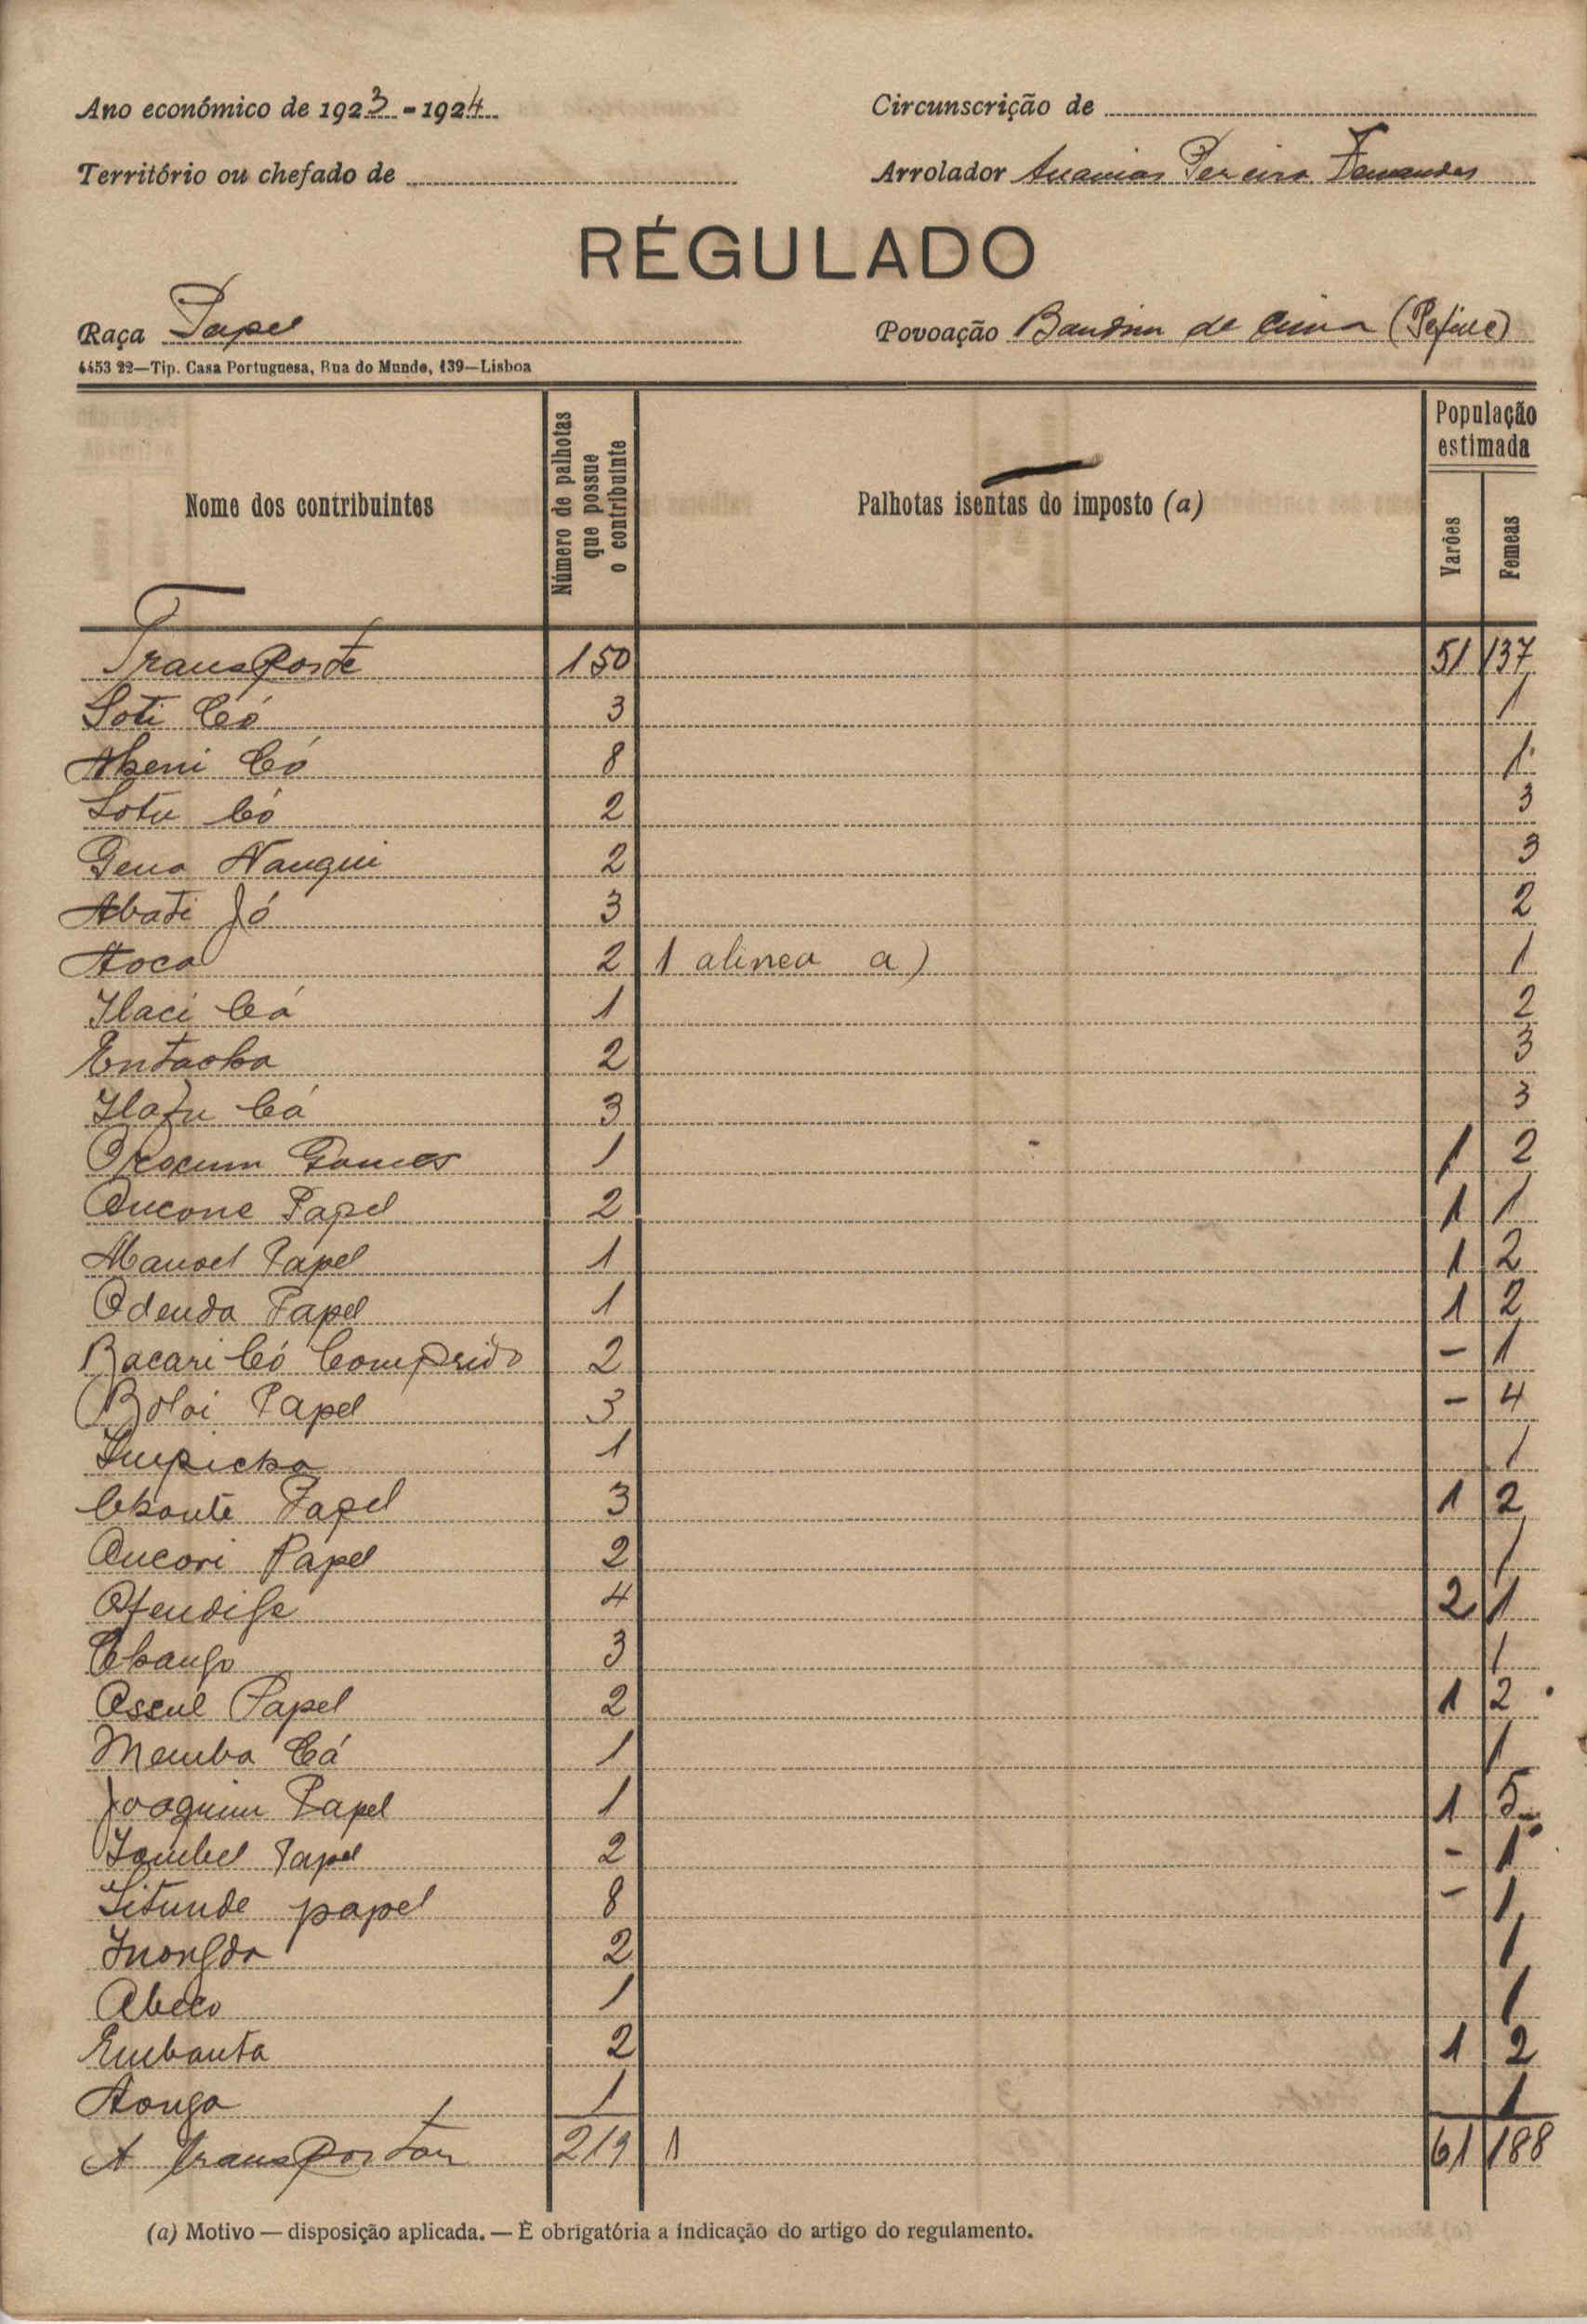 Ano económico de 1923-1924
Circunscrição de
Território ou chefado de
Arrolador Ananias Pereira Fernandes
RÉGULADO
Raça Papel
Povoação Bandim de Cima
4453 22—Tip. Casa Portuguesa, Rua do Mundo, 139—Lisboa
Nome dos contribuintes
Número de palhotas que possue o contribuinte
Palhotas isentas do imposto (a)
População estimada
Varões
Femeas
Transporte 150 51 137
Soti Có 3 1
Có 8 1
Sotu Có 2 3
Gena Nanqui 2 3
Abati Jó 3 2
Atoca 2 1 alinea a) 1
Ilaci Cá 1 2
Entacha 2 3
Ilafu Cá 3 3
Gomes 1 1 2
Papel 2 1 1
Manoel Papel 1 1 2
Odenda Papel 1 1 2
Bacari Có Comprido 2 - 1
Boloi Papel 3 - 4
1 1
Papel 3 1 2
Papel 2 1
4 2 1
3 1
Papel 2 1 2
Memba Cá 1 1
Joaquim Papel 1 1 5
Papel 2 - 1
papel 8 - 1
2 1
1 1
Embanta 2 1 2
1 1
A transportar 219 1 61 188
(a) Motivo — disposição aplicada. — É obrigatória a indicação do artigo do regulamento.